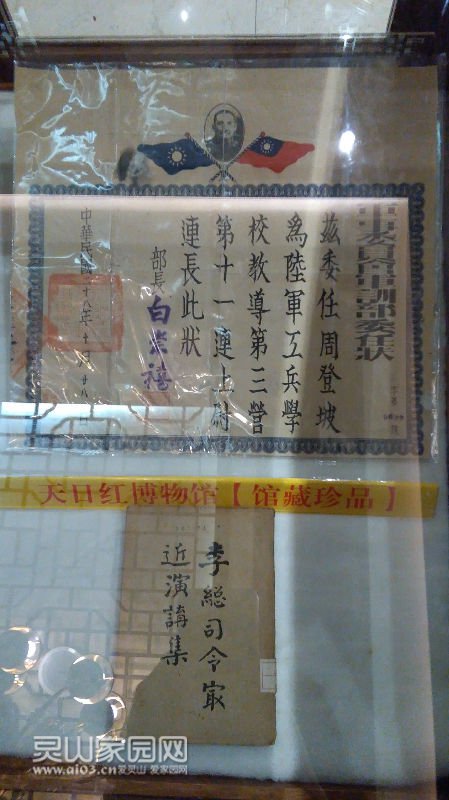 軍事委員會軍訓部委任狀
茲委任周登坡
為陸軍工兵學
校教導第三營
第十一連上尉
連長此狀
部長 白崇禧
中華民國二十八年十月廿八日
天日红博物馆【馆藏珍品】
李總司令㝡
近演講集
灵山家园网
www.ai03.cn 爱灵山 爱家园网